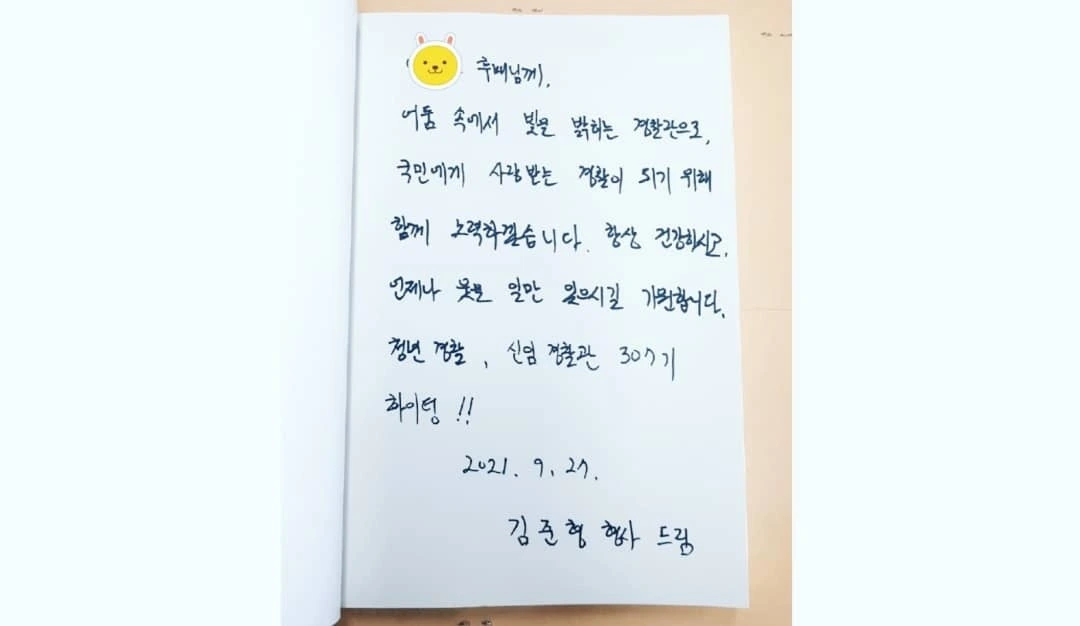 후배님께,
어둠 속에서 빛을 밝히는 경찰관으로,
국민에게 사랑받는 경찰이 되기 위해
함께 노력하겠습니다. 항상 건강하시고,
언제나 좋은 일만 있으시길 기원합니다.
청년 경찰, 신임 경찰관 307기
화이팅!!
2021. 9. 27.
김준형 형사 드림